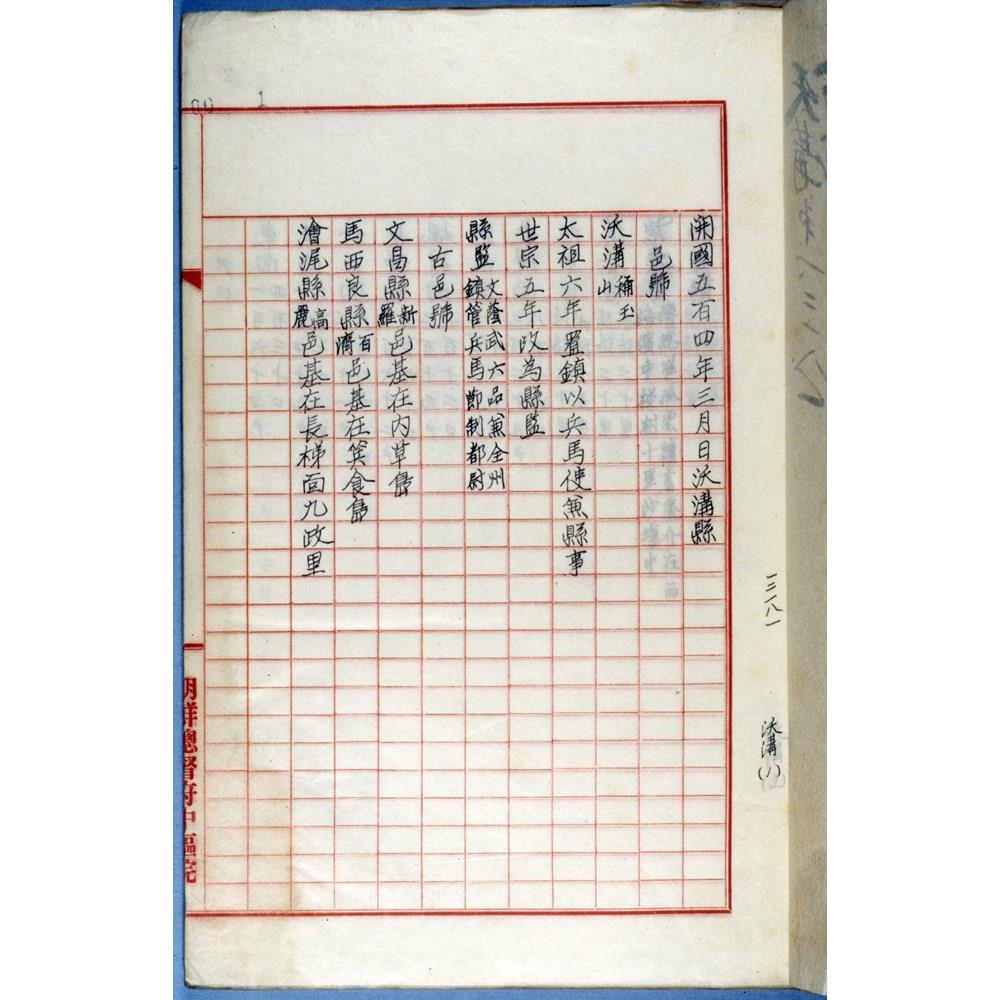 開國五百四年三月日沃溝縣
邑號
沃溝 稱玉山
太祖六年置鎮以兵馬使兼縣事
世宗五年改為縣監
縣監 文蔭武六品兼全州鎮管兵馬節制都尉
古邑號
文昌縣 新羅 邑基在內草島
馬西良縣 百濟 邑基在筽食島
澮尾縣 高麗 邑基在長梯面九政里
朝鮮總督府中樞院
一三一八一
沃溝(八)